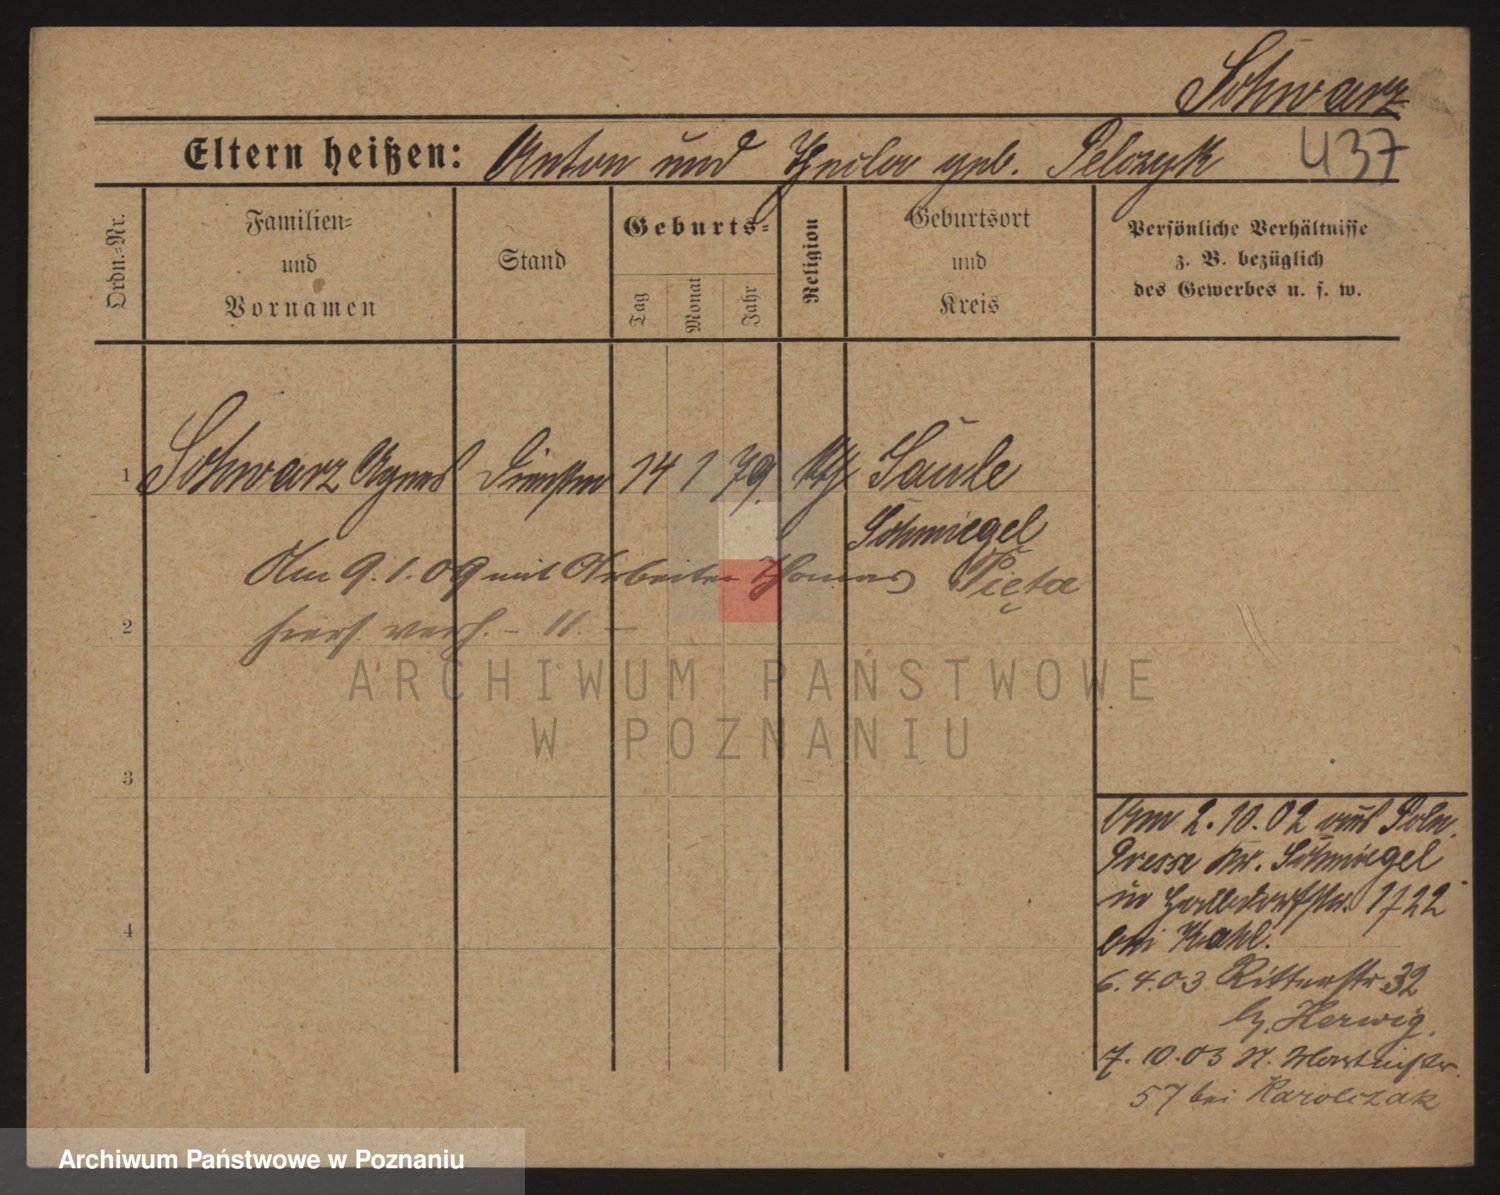 Schwarz
Eltern heißen: Anton und geb. Pelczyk 437
Ordn.=Nr.
Familien=
und
Vornamen
Stand
Geburts=
Tag
Monat
Jahr
Religion
Geburtsort
und
Kreis
Persönliche Verhältnisse
z. B. bezüglich
des Gewerbes u. s. w.
1 Schwarz Agnes 14 1 79. kth Saule
Schmiegel
Am 9.1.09 mit Arbeiter Thomas Pięta
2 hiers. verh. - 11. -
ARCHIWUM PAŃSTWOWE
W POZNANIU
3
4
Am 2.10.02 aus Poln.
Presse Kr. Schmiegel
in Halbdorfstr. 17 22
bei Kahl.
6.4.03 Ritterstr 32
b/ Herwig.
7.10.03 St. Martinstr.
57 bei Karolczak
Archiwum Państwowe w Poznaniu